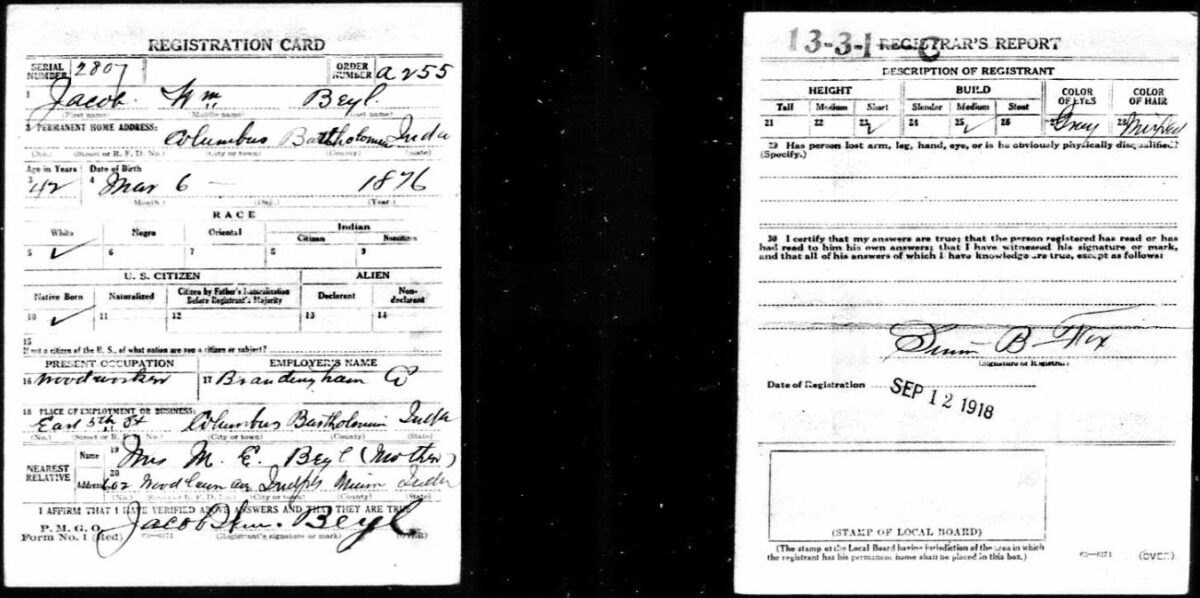 REGISTRATION CARD
SERIAL NUMBER 2807 ORDER NUMBER A255
1 Jacob Wm Beyl
(First name) (Middle name) (Last name)
2 PERMANENT HOME ADDRESS:
Columbus Bartholomew Inda
(No.) (Street or R. F. D. No.) (City or town) (County) (State)
Age in Years Date of Birth
3 42 4 Mar 6 — 1876
(Month.) (Day.) (Year.)
RACE
White Negro Oriental Indian
Citizen Noncitizen
5 ✓ 6 7 8 9
U. S. CITIZEN ALIEN
Native Born Naturalized Citizen by Father's Naturalization Before Registrant's Majority Declarant Non-declarant
10 ✓ 11 12 13 14
15
If not a citizen of the U. S., of what nation are you a citizen or subject?
PRESENT OCCUPATION EMPLOYER'S NAME
16 Woodworker 17
18 PLACE OF EMPLOYMENT OR BUSINESS:
East 5th St Columbus Bartholomew Inda
(No.) (Street or R. F. D. No.) (City or town) (County) (State)
NEAREST RELATIVE
Name 19 Mrs M. E. Beyl (Mother)
Address 20 Woodlawn av Indpls Inda
(No.) (Street or R. F. D. No.) (City or town) (County) (State)
I AFFIRM THAT I HAVE VERIFIED ABOVE ANSWERS AND THAT THEY ARE TRUE
P. M. G. O.
Form No. 1 (Red) Jacob Wm. Beyl
(Registrant's signature or mark) (OVER)
13-3-1 C REGISTRAR'S REPORT
DESCRIPTION OF REGISTRANT
HEIGHT BUILD COLOR OF EYES COLOR OF HAIR
Tall Medium Short Slender Medium Stout
21 22 23 ✓ 24 25 ✓ 26 27 Grey 28 Mixed
29 Has person lost arm, leg, hand, eye, or is he obviously physically disqualified?
(Specify.)
30 I certify that my answers are true; that the person registered has read or has
had read to him his own answers; that I have witnessed his signature or mark,
and that all of his answers of which I have knowledge are true, except as follows:
B Fix
(Signature of Registrar)
Date of Registration SEP 12 1918
(STAMP OF LOCAL BOARD)
(The stamp of the Local Board having jurisdiction of the area in which
the registrant has his permanent home shall be placed in this box.)
63—6171 (OVER)